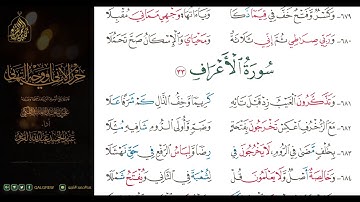 ٦٧٩- وَكَسْرٌ وَفَتْحٌ خَفَّ فِي قِيَمًا ذَكَا وَيَاءَاتُهَا وَجْهِي مَمَاتِيَ مُقْبِلَا
٦٨٠- وَرَبِّي صِرَاطِي ثُمَّ إِنِّي ثَلَاثَةٌ وَمَحْيَايَ وَالْإِسْكَانُ صَحَّ تَحَمُّلَا
سُورَةُ الْأَعْرَافِ
٦٨١- وَتَذَّكَّرُونَ الْغَيْبَ زِدْ قَبْلَ تَائِهِ كَرِيمًا وَخِفُّ الذَّالِ كَمْ شَرَفًا عَلَا
٦٨٢- مَعَ الزُّخْرُفِ اعْكِسْ تُخْرَجُونَ بِفَتْحَةٍ وَضَمٍّ وَأُولَى الرُّومِ شَافِيهِ مُثِّلَا
٦٨٣- بِخُلْفٍ مَضَى فِي الرُّومِ لَا يَخْرُجُونَ فِي رِضًا وَلِبَاسُ الرَّفْعُ فِي حَقِّ نَهْشَلَا
٦٨٤- وَخَالِصَةٌ أَصْلٌ وَلَا يَعْلَمُونَ قُلْ لِشُعْبَةَ فِي الثَّانِي وَيُفْتَحُ شَمْلَلَا
حرز الأماني ووجه التهاني